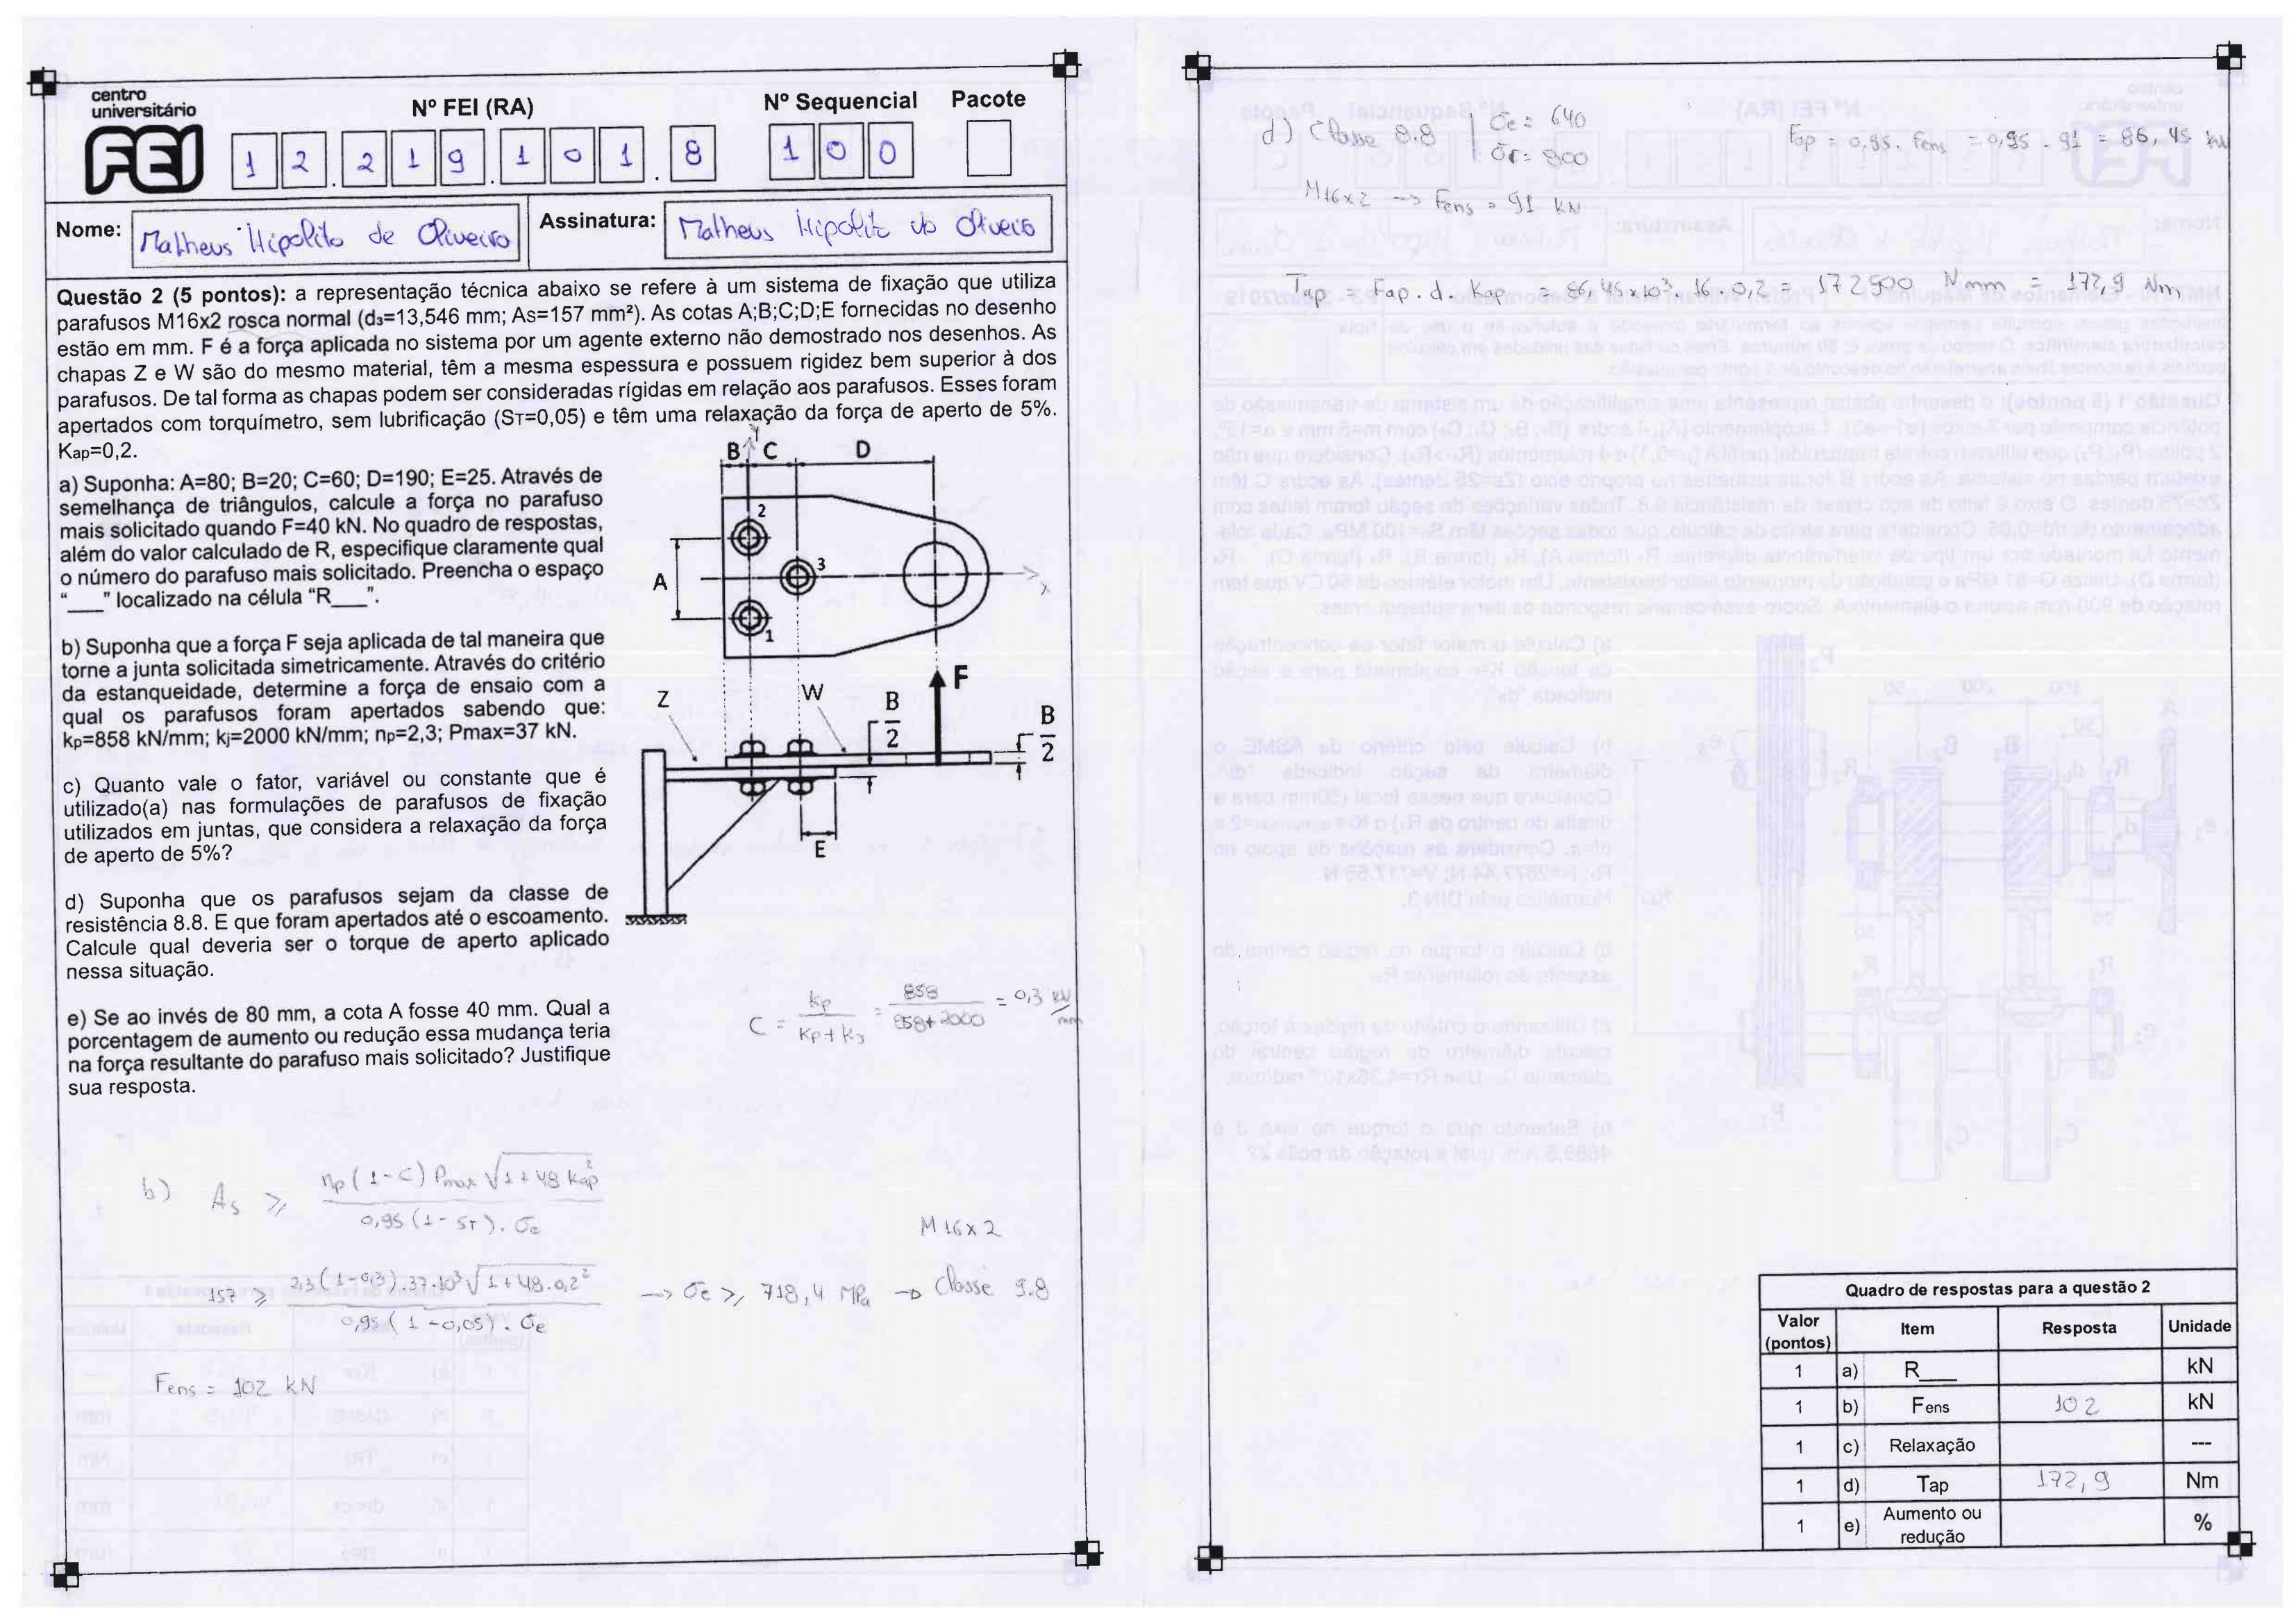 centro
universitário
FEI
Nº FEI (RA)
Nº Sequencial
Pacote
1 2 . 2 1 9 . 1 0 1 . 8
1 0 0
Nome:
Matheus Hipolito de Oliveira
Assinatura:
Matheus Hipolito de Oliveira
Questão 2 (5 pontos): a representação técnica abaixo se refere à um sistema de fixação que utiliza
parafusos M16x2 rosca normal (d₃=13,546 mm; As=157 mm²). As cotas A;B;C;D;E fornecidas no desenho
estão em mm. F é a força aplicada no sistema por um agente externo não demostrado nos desenhos. As
chapas Z e W são do mesmo material, têm a mesma espessura e possuem rigidez bem superior à dos
parafusos. De tal forma as chapas podem ser consideradas rígidas em relação aos parafusos. Esses foram
apertados com torquímetro, sem lubrificação (Sᴛ=0,05) e têm uma relaxação da força de aperto de 5%.
Kap=0,2.
a) Suponha: A=80; B=20; C=60; D=190; E=25. Através de
semelhança de triângulos, calcule a força no parafuso
mais solicitado quando F=40 kN. No quadro de respostas,
além do valor calculado de R, especifique claramente qual
o número do parafuso mais solicitado. Preencha o espaço
"___" localizado na célula "R___".
b) Suponha que a força F seja aplicada de tal maneira que
torne a junta solicitada simetricamente. Através do critério
da estanqueidade, determine a força de ensaio com a
qual os parafusos foram apertados sabendo que:
kp=858 kN/mm; kj=2000 kN/mm; np=2,3; Pmax=37 kN.
c) Quanto vale o fator, variável ou constante que é
utilizado(a) nas formulações de parafusos de fixação
utilizados em juntas, que considera a relaxação da força
de aperto de 5%?
d) Suponha que os parafusos sejam da classe de
resistência 8.8. E que foram apertados até o escoamento.
Calcule qual deveria ser o torque de aperto aplicado
nessa situação.
e) Se ao invés de 80 mm, a cota A fosse 40 mm. Qual a
porcentagem de aumento ou redução essa mudança teria
na força resultante do parafuso mais solicitado? Justifique
sua resposta.
B C D
y
2
3
1
A
x
F
Z
W
B/2
B/2
E
C = kp/(kp+kj) = 858/(858+2000) = 0,3 kN/mm
b) As ≥ np(1-C) Pmax √(1+48 kap²) / 0,95(1-ST).σe
M16x2
157 ≥ 2,3(1-0,3).37.10³ √(1+48.0,2²) / 0,95(1-0,05).σe → σe ≥ 718,4 MPa → Classe 9.8
Fens = 102 kN
d) Classe 8.8 | σe = 640
σr = 800
Fap = 0,95. Fens = 0,95 . 91 = 86,45 kN
M16x2 → Fens = 91 kN
Tap = Fap . d. Kap = 86,45x10³. 16. 0,2 = 172900 Nmm = 172,9 Nm
Quadro de respostas para a questão 2
Valor (pontos) Item Resposta Unidade
1 a) R___ kN
1 b) Fens 102 kN
1 c) Relaxação ---
1 d) Tap 172,9 Nm
1 e) Aumento ou redução %